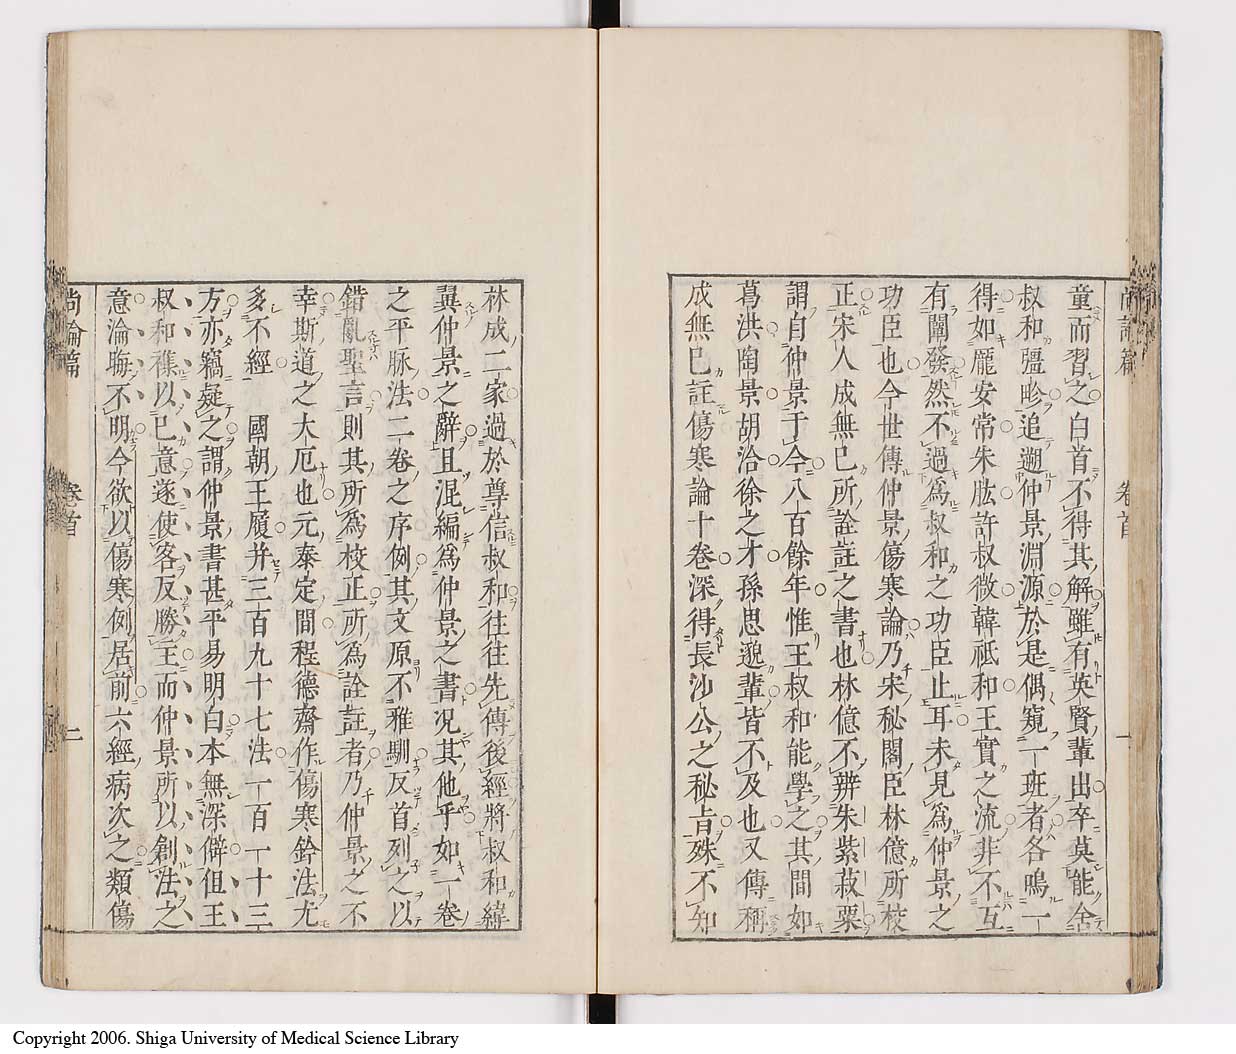 尚論篇 卷首 一
童而習之白首不得其解雖有英賢輩出卒莫能舍
叔和疆畛追遡仲景淵源於是偶窺一班者各鳴一
得如龐安常朱肱許叔微韓祗和王實之流非不互
有闡發然不過為叔和之功臣止耳未見為仲景之
功臣也今世傳仲景傷寒論乃宋秘閣臣林億所校
正宋人成無已所詮註之書也林億不辨朱紫菽粟
謂自仲景于今八百餘年惟王叔和能學之其間如
葛洪陶景胡洽徐之才孫思邈輩皆不及也又傳稱
成無已註傷寒論十卷深得長沙公之秘旨殊不知
林成二家過於尊信叔和往往先傳後經將叔和緯
翼仲景之辭且混編為仲景之書況其他乎如一卷
之平脉法二卷之序例其文原不雅馴反首列之以
錯亂聖言則其所為校正所為詮註者乃仲景之不
幸斯道之大厄也元泰定間程德齋作傷寒鈐法尤
多不經 國朝王履并三百九十七法一百一十三
方亦竊疑之謂仲景書甚平易明白本無深僻但王
叔和襍以已意遂使客反勝主而仲景所以創法之
意淪晦不明今欲以傷寒例居前六經病次之類傷
尚論篇 卷首 二
Copyright 2006. Shiga University of Medical Science Library